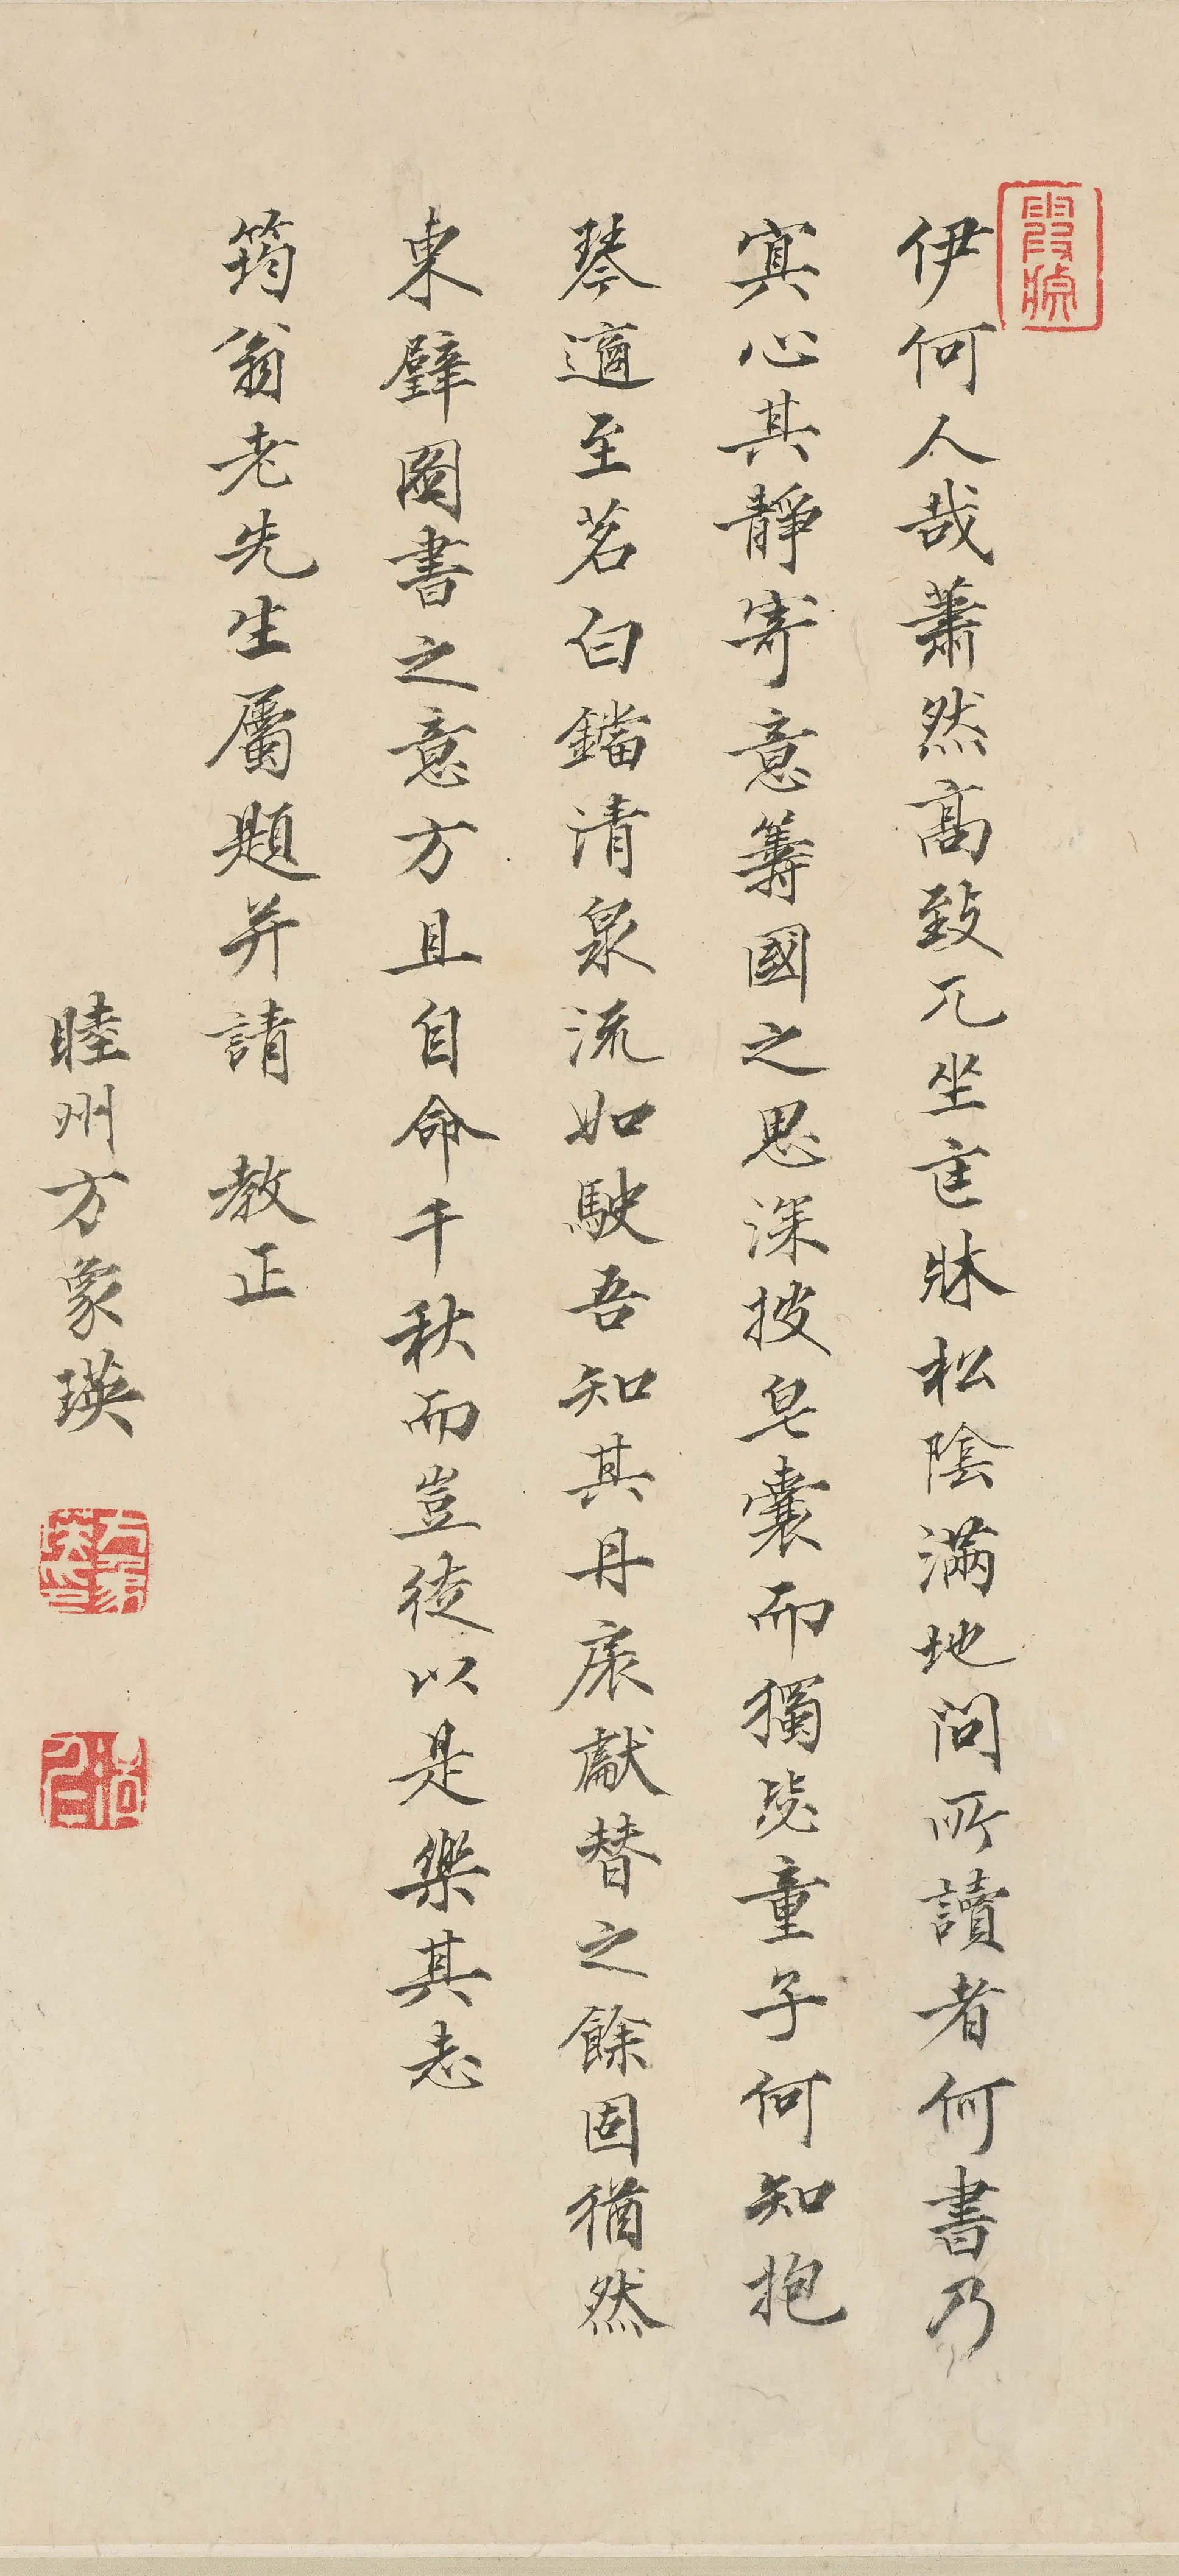 伊何人哉蕭然高致兀坐匡牀松陰滿地問所讀者何書乃
寘心其靜寄意籌國之思深披皂囊而獨毖童子何知抱
琴適至茗臼鐺清泉流如駛吾知其丹扆獻替之餘固猶然
東壁圖書之意方且自命千秋而豈徒以是樂其志
筠翁老先生屬題并請 教正
睦州方象瑛